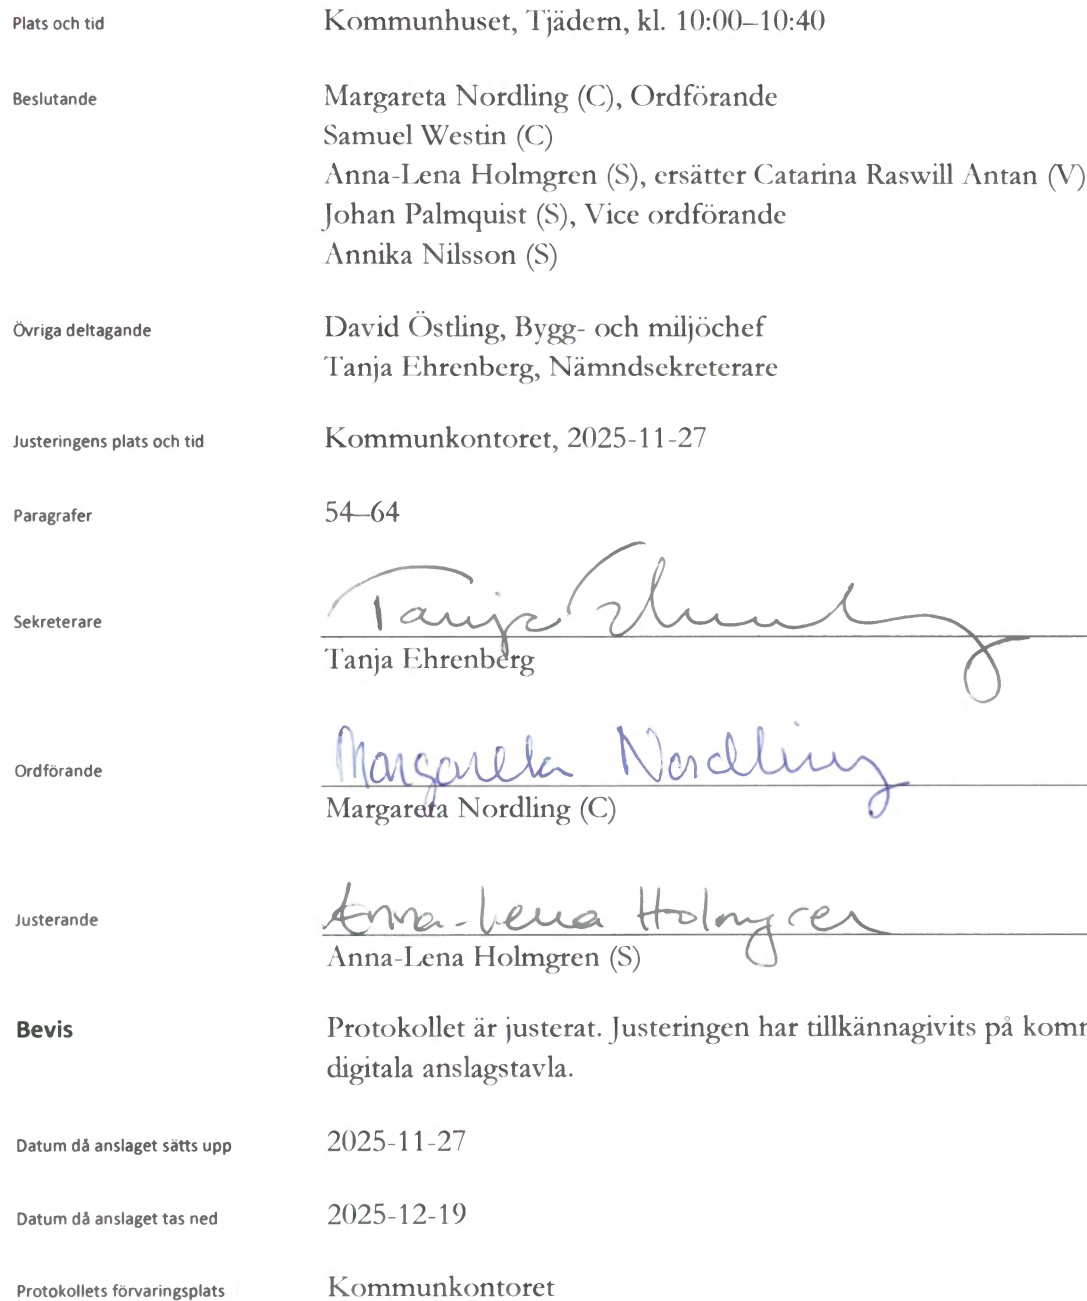 Plats och tid Kommunhuset, Tjädern, kl. 10:00–10:40
Beslutande Margareta Nordling (C), Ordförande
Samuel Westin (C)
Anna-Lena Holmgren (S), ersätter Catarina Raswill Antan (V)
Johan Palmquist (S), Vice ordförande
Annika Nilsson (S)
Övriga deltagande David Östling, Bygg- och miljöchef
Tanja Ehrenberg, Nämndsekreterare
Justeringens plats och tid Kommunkontoret, 2025-11-27
Paragrafer 54–64
Tanja Ehrenberg
Sekreterare
Tanja Ehrenberg
Margareta Nordling
Ordförande
Margareta Nordling (C)
Anna-Lena Holmgren
Justerande
Anna-Lena Holmgren (S)
Bevis Protokollet är justerat. Justeringen har tillkännagivits på komm
digitala anslagstavla.
Datum då anslaget sätts upp 2025-11-27
Datum då anslaget tas ned 2025-12-19
Protokollets förvaringsplats Kommunkontoret